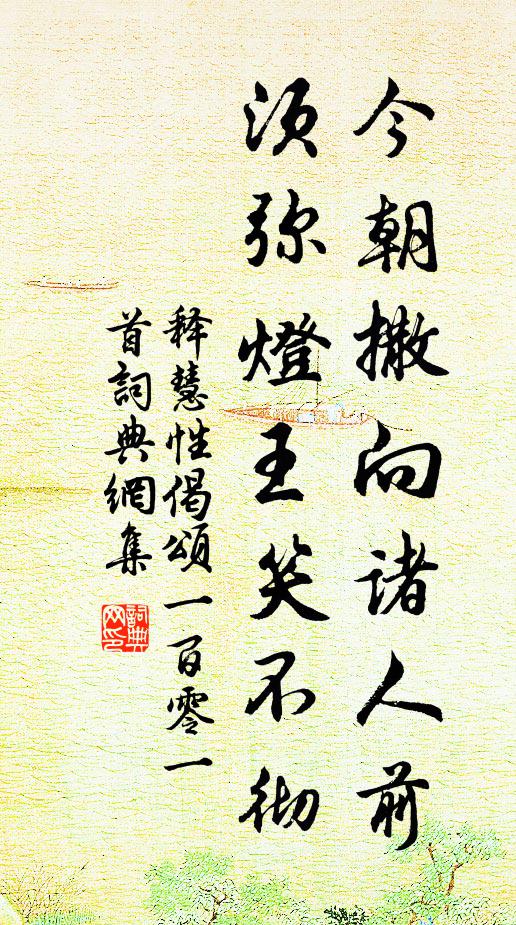 今朝撒向诸人前
须弥燈王笑不彻
释慧性偈頌一百零一
首詞典網集
詞典
网印